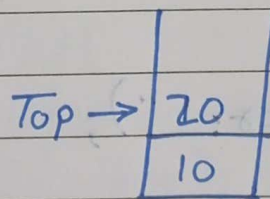 Top → 20
10